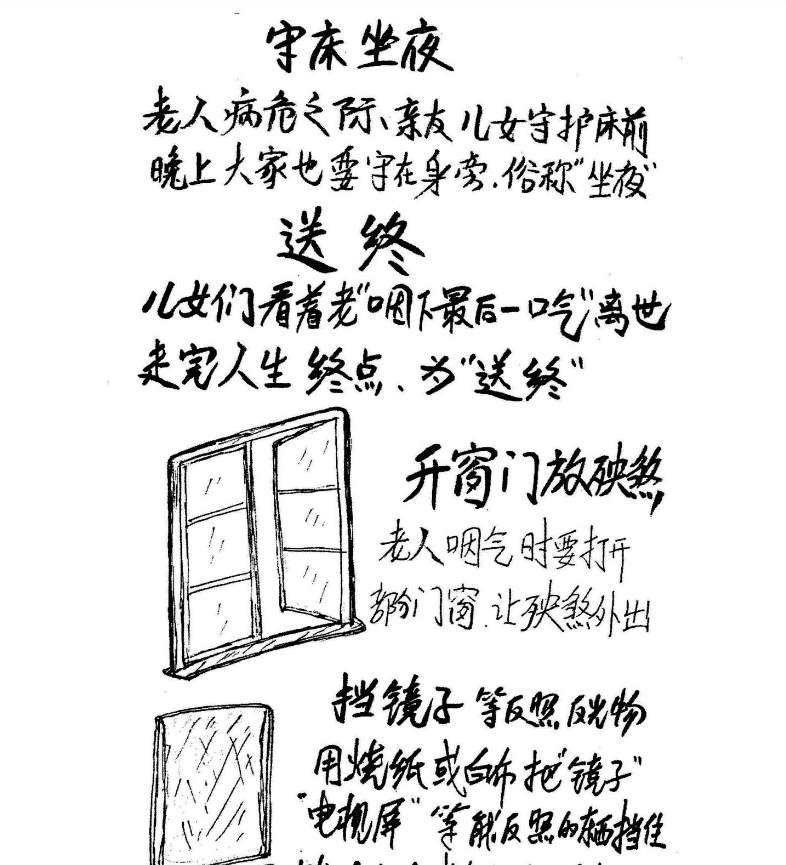 守床坐夜
老人病危之际、亲友儿女守护床前
晚上大家也要守在身旁.俗称"坐夜"
送终
儿女们看着老"咽下最后一口气"离世
走完人生终点、为"送终"
开窗门放殃煞
老人咽气时要打开
部份门窗.让殃煞外出
挡镜子等反照反光物
用烧纸或白布把"镜子"
"电视屏"等能反照的东西挡住